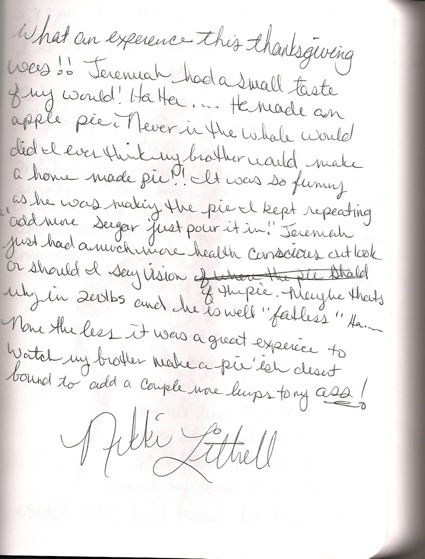 What an experence this thanksgiving
was!! Jeremiah had a small taste
of my would! Ha Ha.... He made an
apple pie. Never in the whole would
did I ever think my brother would make
a home made pie!! It was so funny
as he was making the pie I kept repeating
"add more sugar just pour it in!" Jeremiah
just had a much more health conscious outlook
or should I say vision of where the pie shold
of the pie. Maybe thats
why im 200lbs and he is well "fatless" Ha....
None the less it was a great experice to
watch my brother make a pie'ish desert
bound to add a couple more lumps to my ass!
Nikki Littrell